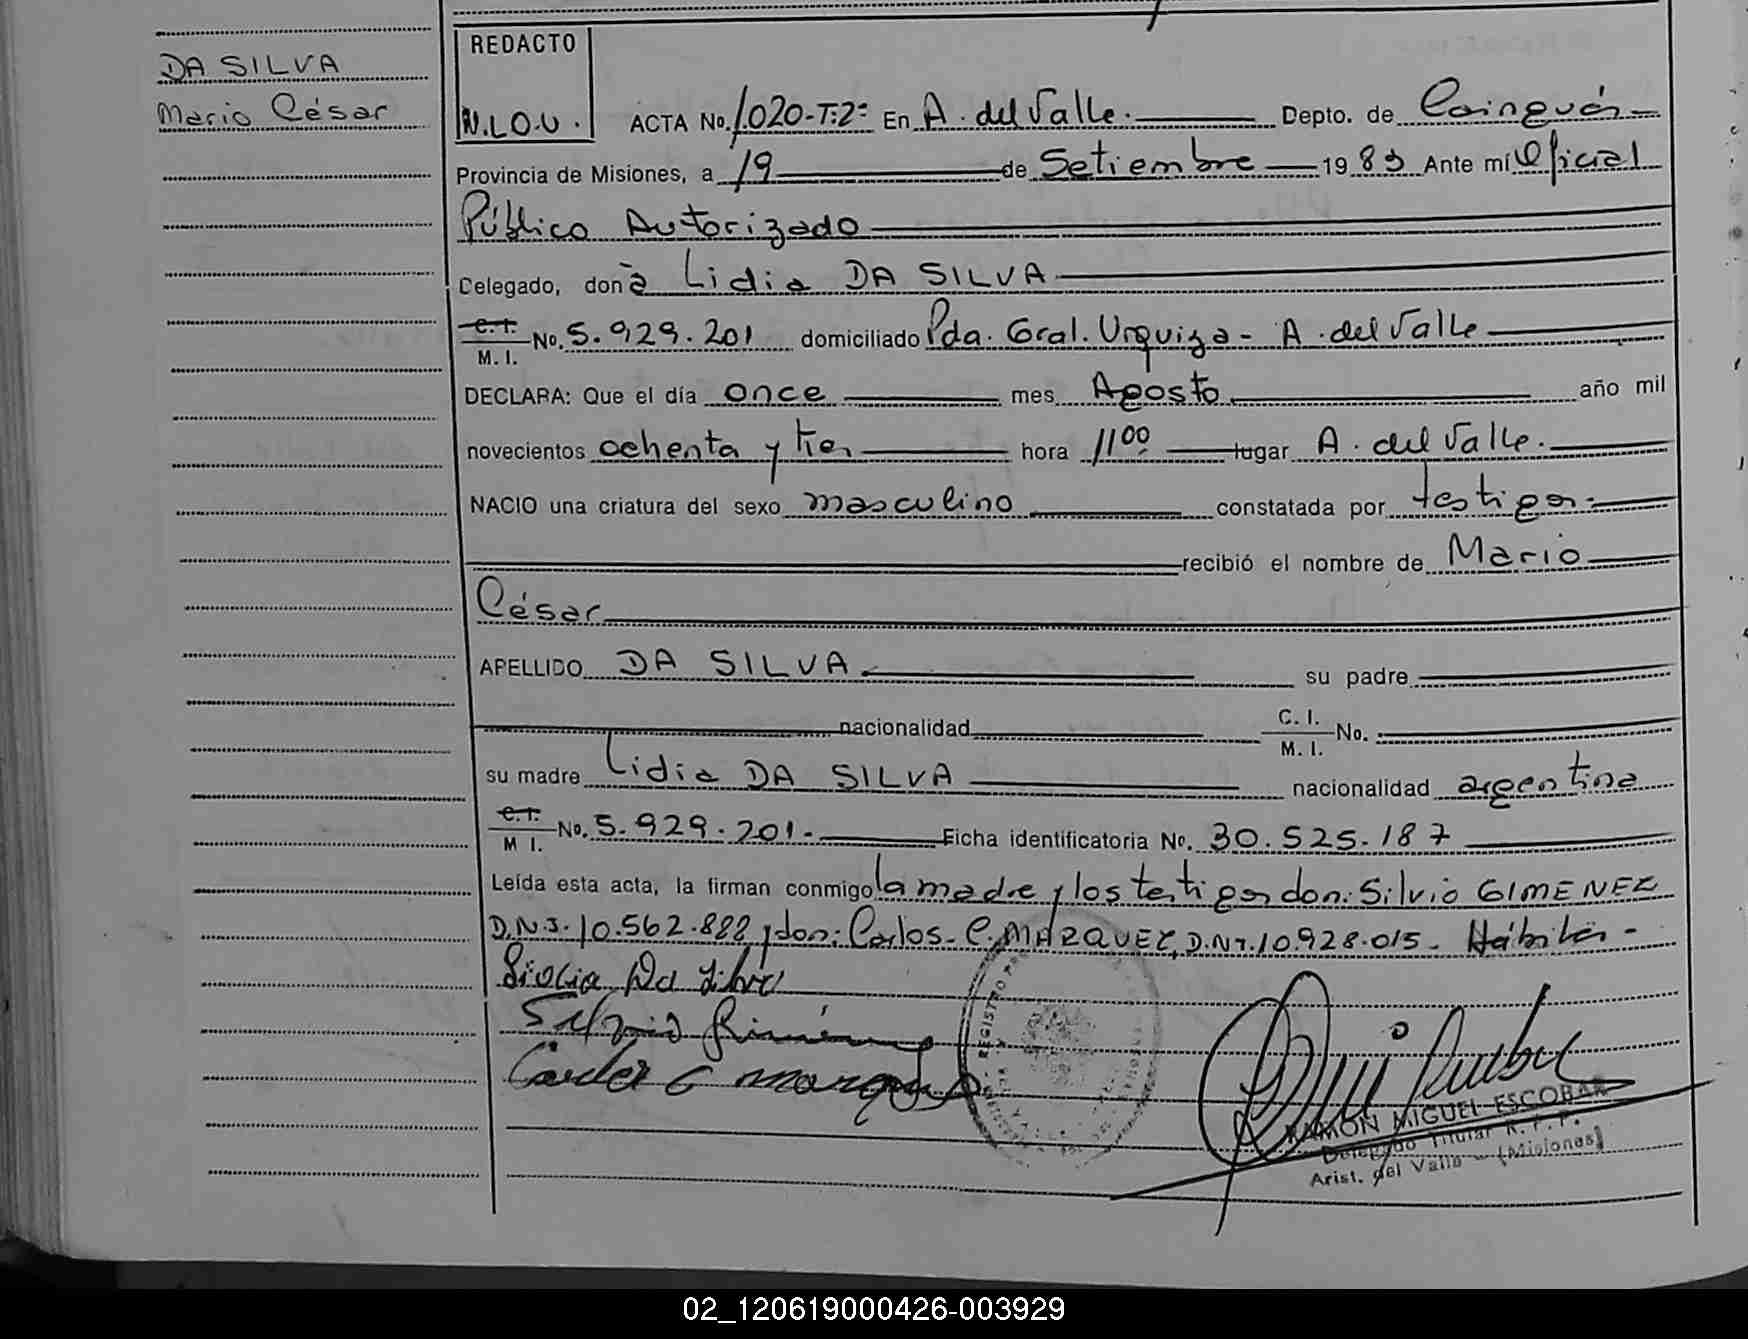 DA SILVA
Mario César
REDACTO
N.L.O.U.
ACTA No. 1.020-T:2º En A. del Valle. Depto. de Cainguás
Provincia de Misiones, a 19 de Setiembre 1983 Ante mí Oficial
Público Autorizado
Celegado, doña Lidia DA SILVA
C.I. / M. I. No. 5.929.201 domiciliado Pda. Gral. Urquiza - A. del Valle
DECLARA: Que el día once mes Agosto año mil
novecientos ochenta y tres hora 11 00 lugar A. del Valle.
NACIO una criatura del sexo masculino constatada por testigos
recibió el nombre de Mario
César
APELLIDO DA SILVA su padre
nacionalidad C. I. / M. I. No.
su madre Lidia DA SILVA nacionalidad argentina
C.I. / M I. No. 5.929.201.- Ficha identificatoria No. 30.525.187
Leída esta acta, la firman conmigo la madre y los testigos don: Silvio GIMENEZ
D.N.I. 10.562.888 y don: Carlos C. MARQUEZ, D.N.I. 10.928.015- Hábiles-
Lidia Da Silva
Silvio Giménez
Carlos C Marquez
REGISTRO
RAMON MIGUEL ESCOBAR
Delegado Titular R. P. P.
Arist. del Valle - (Misiones)
02_120619000426-003929